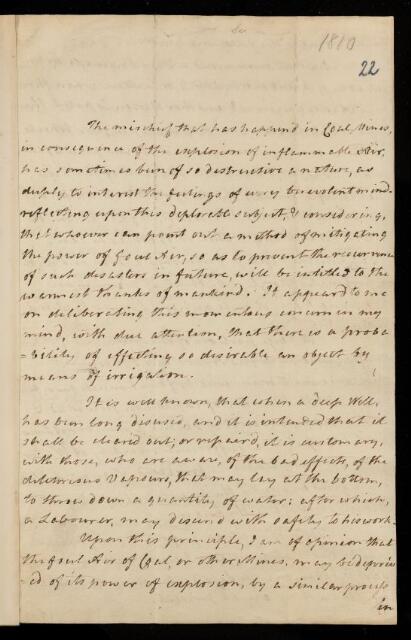 1810
22
The mischief that has happend in Coal Mines,
in consequence of the explosion of inflammable Air,
has sometimes been of so destructive a nature, as
deeply to interest the feelings of every benevolent mind.
reflecting upon this deplorable subject, & considering,
that whoever can point out a method of mitigating
the power of foul Air, so as to prevent the recurrence
of such disasters in future, will be intitled to the
warmest thanks of mankind. It appeard to me
on deliberating this momentous concern in my
mind, with due attention, that there is a proba
=bility of effecting so desirable an object by
means of irrigation.
It is well known, that when a deep Well,
has been long disused, and it is intended that it
shall be cleared out, or repaerd, it is customary,
with those, who are aware, of the bad effects, of the
deleterious Vapours, that may lay at the bottom,
to throw down a quantity of water: after which,
a Labourer, may descend with safety to his work.
Upon this principle, I am of opinion that
the foul Air of Coal, or other Mines, may be depriv
=ed of its power of explosion, by a similar process
in